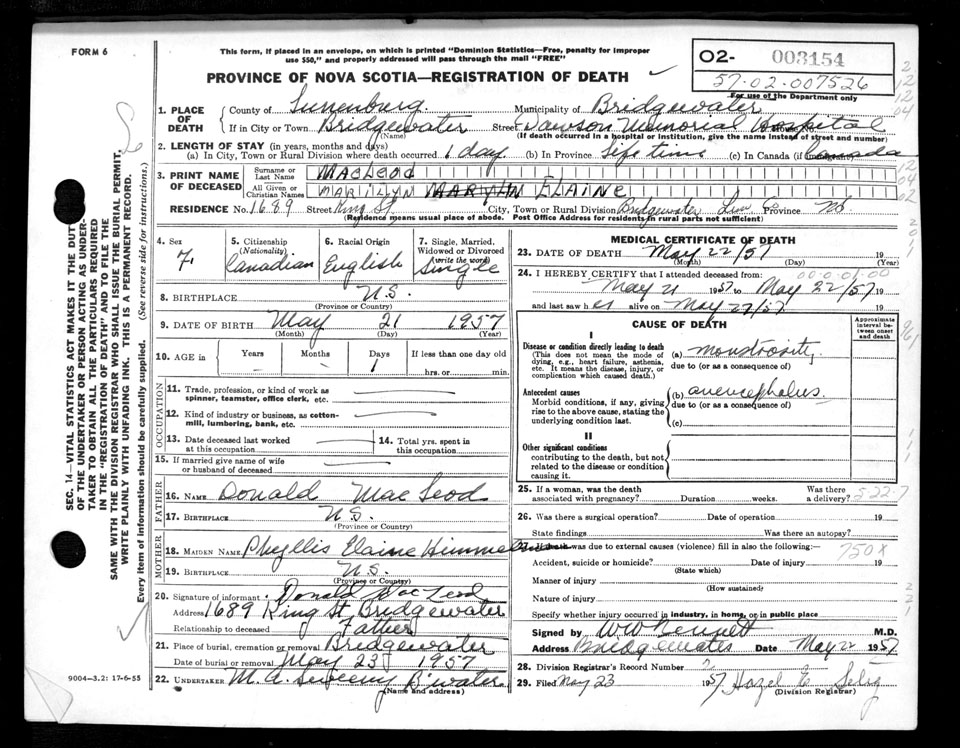 FORM 6
This form, if placed in an envelope, on which is printed "Dominion Statistics—Free, penalty for improper
use $50," and properly addressed will pass through the mail "FREE"
PROVINCE OF NOVA SCOTIA—REGISTRATION OF DEATH
02- 003154
57-02-007526
For use of the Department only
1. PLACE OF DEATH
County of Lunenburg. Municipality of Bridgewater
If in City or Town Bridgewater Street Dawson Memorial Hospital
(Name) (If death occurred in a hospital or institution, give the name instead of street and number)
2. LENGTH OF STAY (in years, months and days)
(a) In City, Town or Rural Division where death occurred 1 day. (b) In Province Life time (c) In Canada (if immigrant) Canada
3. PRINT NAME OF DECEASED
Surname or Last Name MacLeod
All Given or Christian Names MARILLYN MARYLN ELAINE
RESIDENCE No. 1689 Street King St. City, Town or Rural Division Bridgewater Lun Co Province NS
(Residence means usual place of abode. Post Office Address for residents in rural parts not sufficient)
4. Sex F.
5. Citizenship (Nationality) Canadian
6. Racial Origin English
7. Single, Married, Widowed or Divorced (write the word) Single
8. BIRTHPLACE N.S.
(Province or Country)
9. DATE OF BIRTH May 21 1957
(Month) (Day) (Year)
10. AGE in Years — Months — Days 1 If less than one day old
hrs. or min.
OCCUPATION
11. Trade, profession, or kind of work as spinner, teamster, office clerk, etc.
12. Kind of industry or business, as cotton-mill, lumbering, bank, etc.
13. Date deceased last worked at this occupation
14. Total yrs. spent in this occupation
15. If married give name of wife or husband of deceased
FATHER
16. NAME Donald MacLeod
17. BIRTHPLACE N.S.
(Province or Country)
MOTHER
18. MAIDEN NAME Phyllis Elaine Himmelman
19. BIRTHPLACE N.S.
(Province or Country)
20. Signature of informant Donald MacLeod
Address 1689 King St. Bridgewater
Relationship to deceased Father
21. Place of burial, cremation or removal Bridgewater
Date of burial or removal May 23 1957
22. UNDERTAKER M. A. Sweeny B'water
(Name and address)
MEDICAL CERTIFICATE OF DEATH
23. DATE OF DEATH May 22/57 19
(Month) (Day) (Year)
24. I HEREBY CERTIFY that I attended deceased from:
00-0-01-00
May 21 1957 to May 22/57 19
and last saw her alive on May 22/57 19
CAUSE OF DEATH
Approximate interval between onset and death
I
Disease or condition directly leading to death
(This does not mean the mode of dying, e.g., heart failure, asthenia, etc. It means the disease, injury, or complication which caused death.)
(a) monstrosity
due to (or as a consequence of)
Antecedent causes
Morbid conditions, if any, giving rise to the above cause, stating the underlying condition last.
(b) anencephalus.
due to (or as a consequence of)
(c)
II
Other significant conditions
contributing to the death, but not related to the disease or condition causing it.
25. If a woman, was the death associated with pregnancy? Duration weeks. Was there a delivery?
26. Was there a surgical operation? Date of operation 19
State findings Was there an autopsy?
27. If death was due to external causes (violence) fill in also the following:—
750X
Accident, suicide or homicide? Date of injury 19
(State which)
Manner of injury
(How sustained)
Nature of injury
Specify whether injury occurred in industry, in home, or in public place
Signed by WW Bennett M.D.
Address Bridgewater Date May 22 1957
28. Division Registrar's Record Number
29. Filed May 23 1957 Hazel E Selig
(Division Registrar)
SEC. 14—VITAL STATISTICS ACT MAKES IT THE DUTY
OF THE UNDERTAKER OR PERSON ACTING AS UNDER-
TAKER TO OBTAIN ALL THE PARTICULARS REQUIRED
IN THE "REGISTRATION OF DEATH" AND TO FILE THE
SAME WITH THE DIVISION REGISTRAR WHO SHALL ISSUE THE BURIAL PERMIT.
WRITE PLAINLY WITH UNFADING INK. THIS IS A PERMANENT RECORD.
Every item of information should be carefully supplied. (See reverse side for instructions.)
9004—3.2: 17-6-55